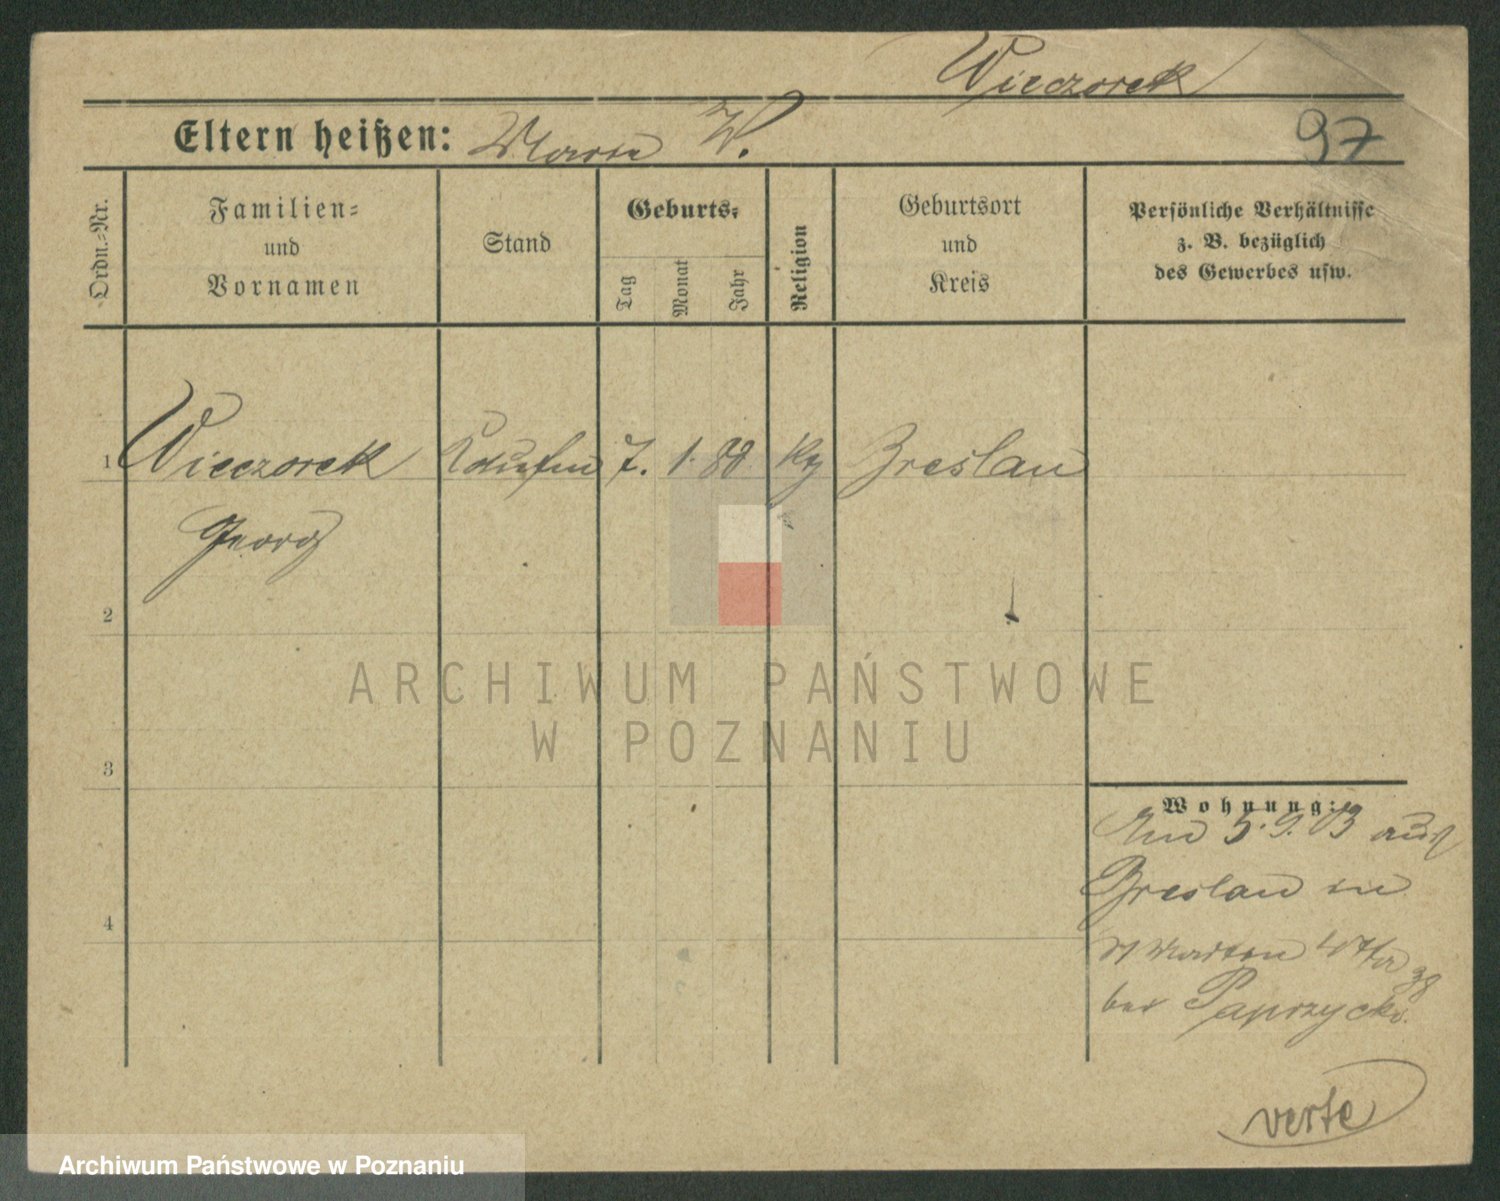 Wieczorek
Eltern heißen: Marie W.
97
Ordn.-Nr.
Familien-
und
Vornamen
Stand
Geburts-
Tag
Monat
Jahr
Religion
Geburtsort
und
Kreis
Persönliche Verhältnisse
z. B. bezüglich
des Gewerbes usw.
1 Wieczorek 7. 1. 88 Breslau
Georg
2
3
4
Wohnung:
5. 9. 03 aus
Breslau in
St Martin 38
bei Paprzycki.
verte
ARCHIWUM PAŃSTWOWE
W POZNANIU
Archiwum Państwowe w Poznaniu